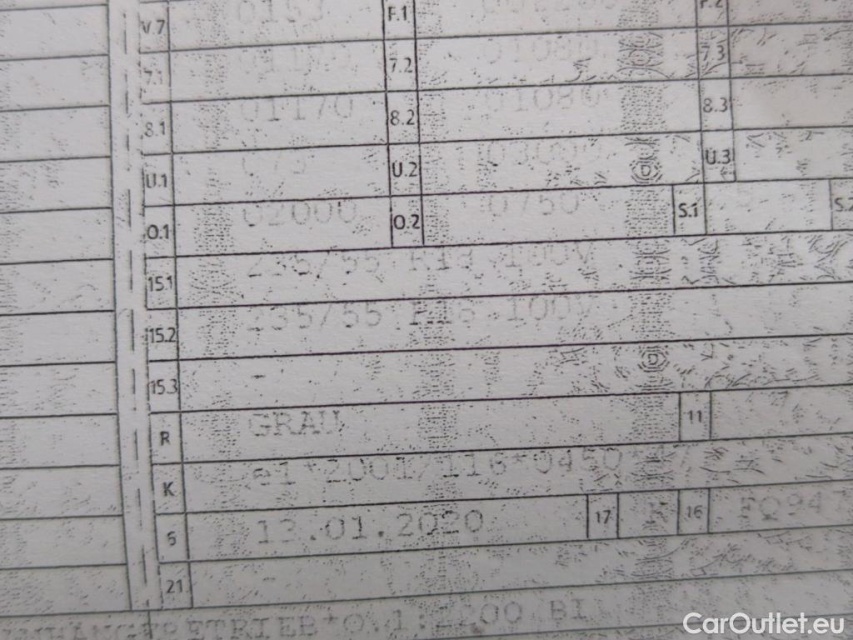 V.7 0153 F.1 F.2
7.1 7.2 01080 7.3
8.1 01170 8.2 01080 8.3
U.1 075 U.2 03000 U.3
O.1 02000 O.2 0750 S.1 5 S.2
15.1 235/55 R18 100V
15.2 235/55 R18 100V
15.3 -
R GRAU 11
K e1*2001/116*0450*
5 13.01.2020 17 K 16
21
O.1:2200
CarOutlet.eu